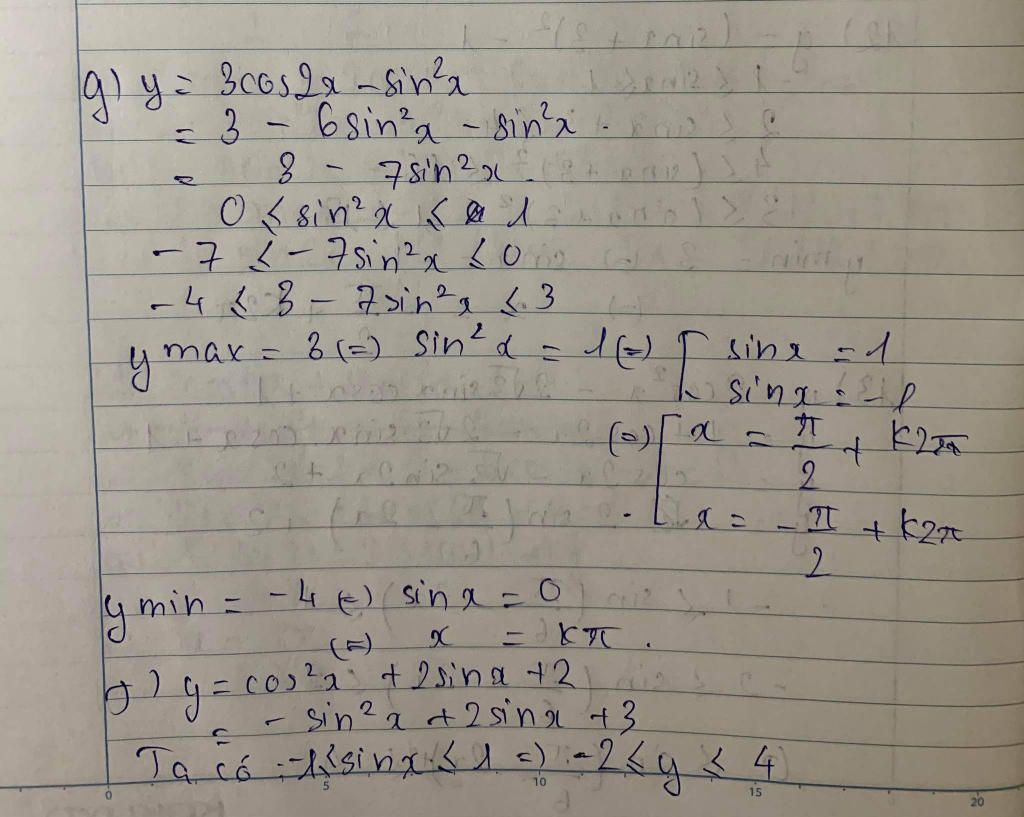 g) y = 3cos2x - sin²x
= 3 - 6sin²x - sin²x.
= 3 - 7sin²x.
0 ≤ sin²x ≤ 1
-7 ≤ -7sin²x ≤ 0
-4 ≤ 3 - 7sin²x ≤ 3
y max = 3 (=) sin²x = 1 (=) [ sinx = 1
sinx = -1
(=) [ x = π/2 + k2π
x = -π/2 + k2π
y min = -4 (=) sinx = 0
(=) x = kπ.
g) y = cos²x + 2sinx + 2
= -sin²x + 2sinx + 3
Ta có : -1 ≤ sinx ≤ 1 =) -2 ≤ y ≤ 4
0 5 10 15 20